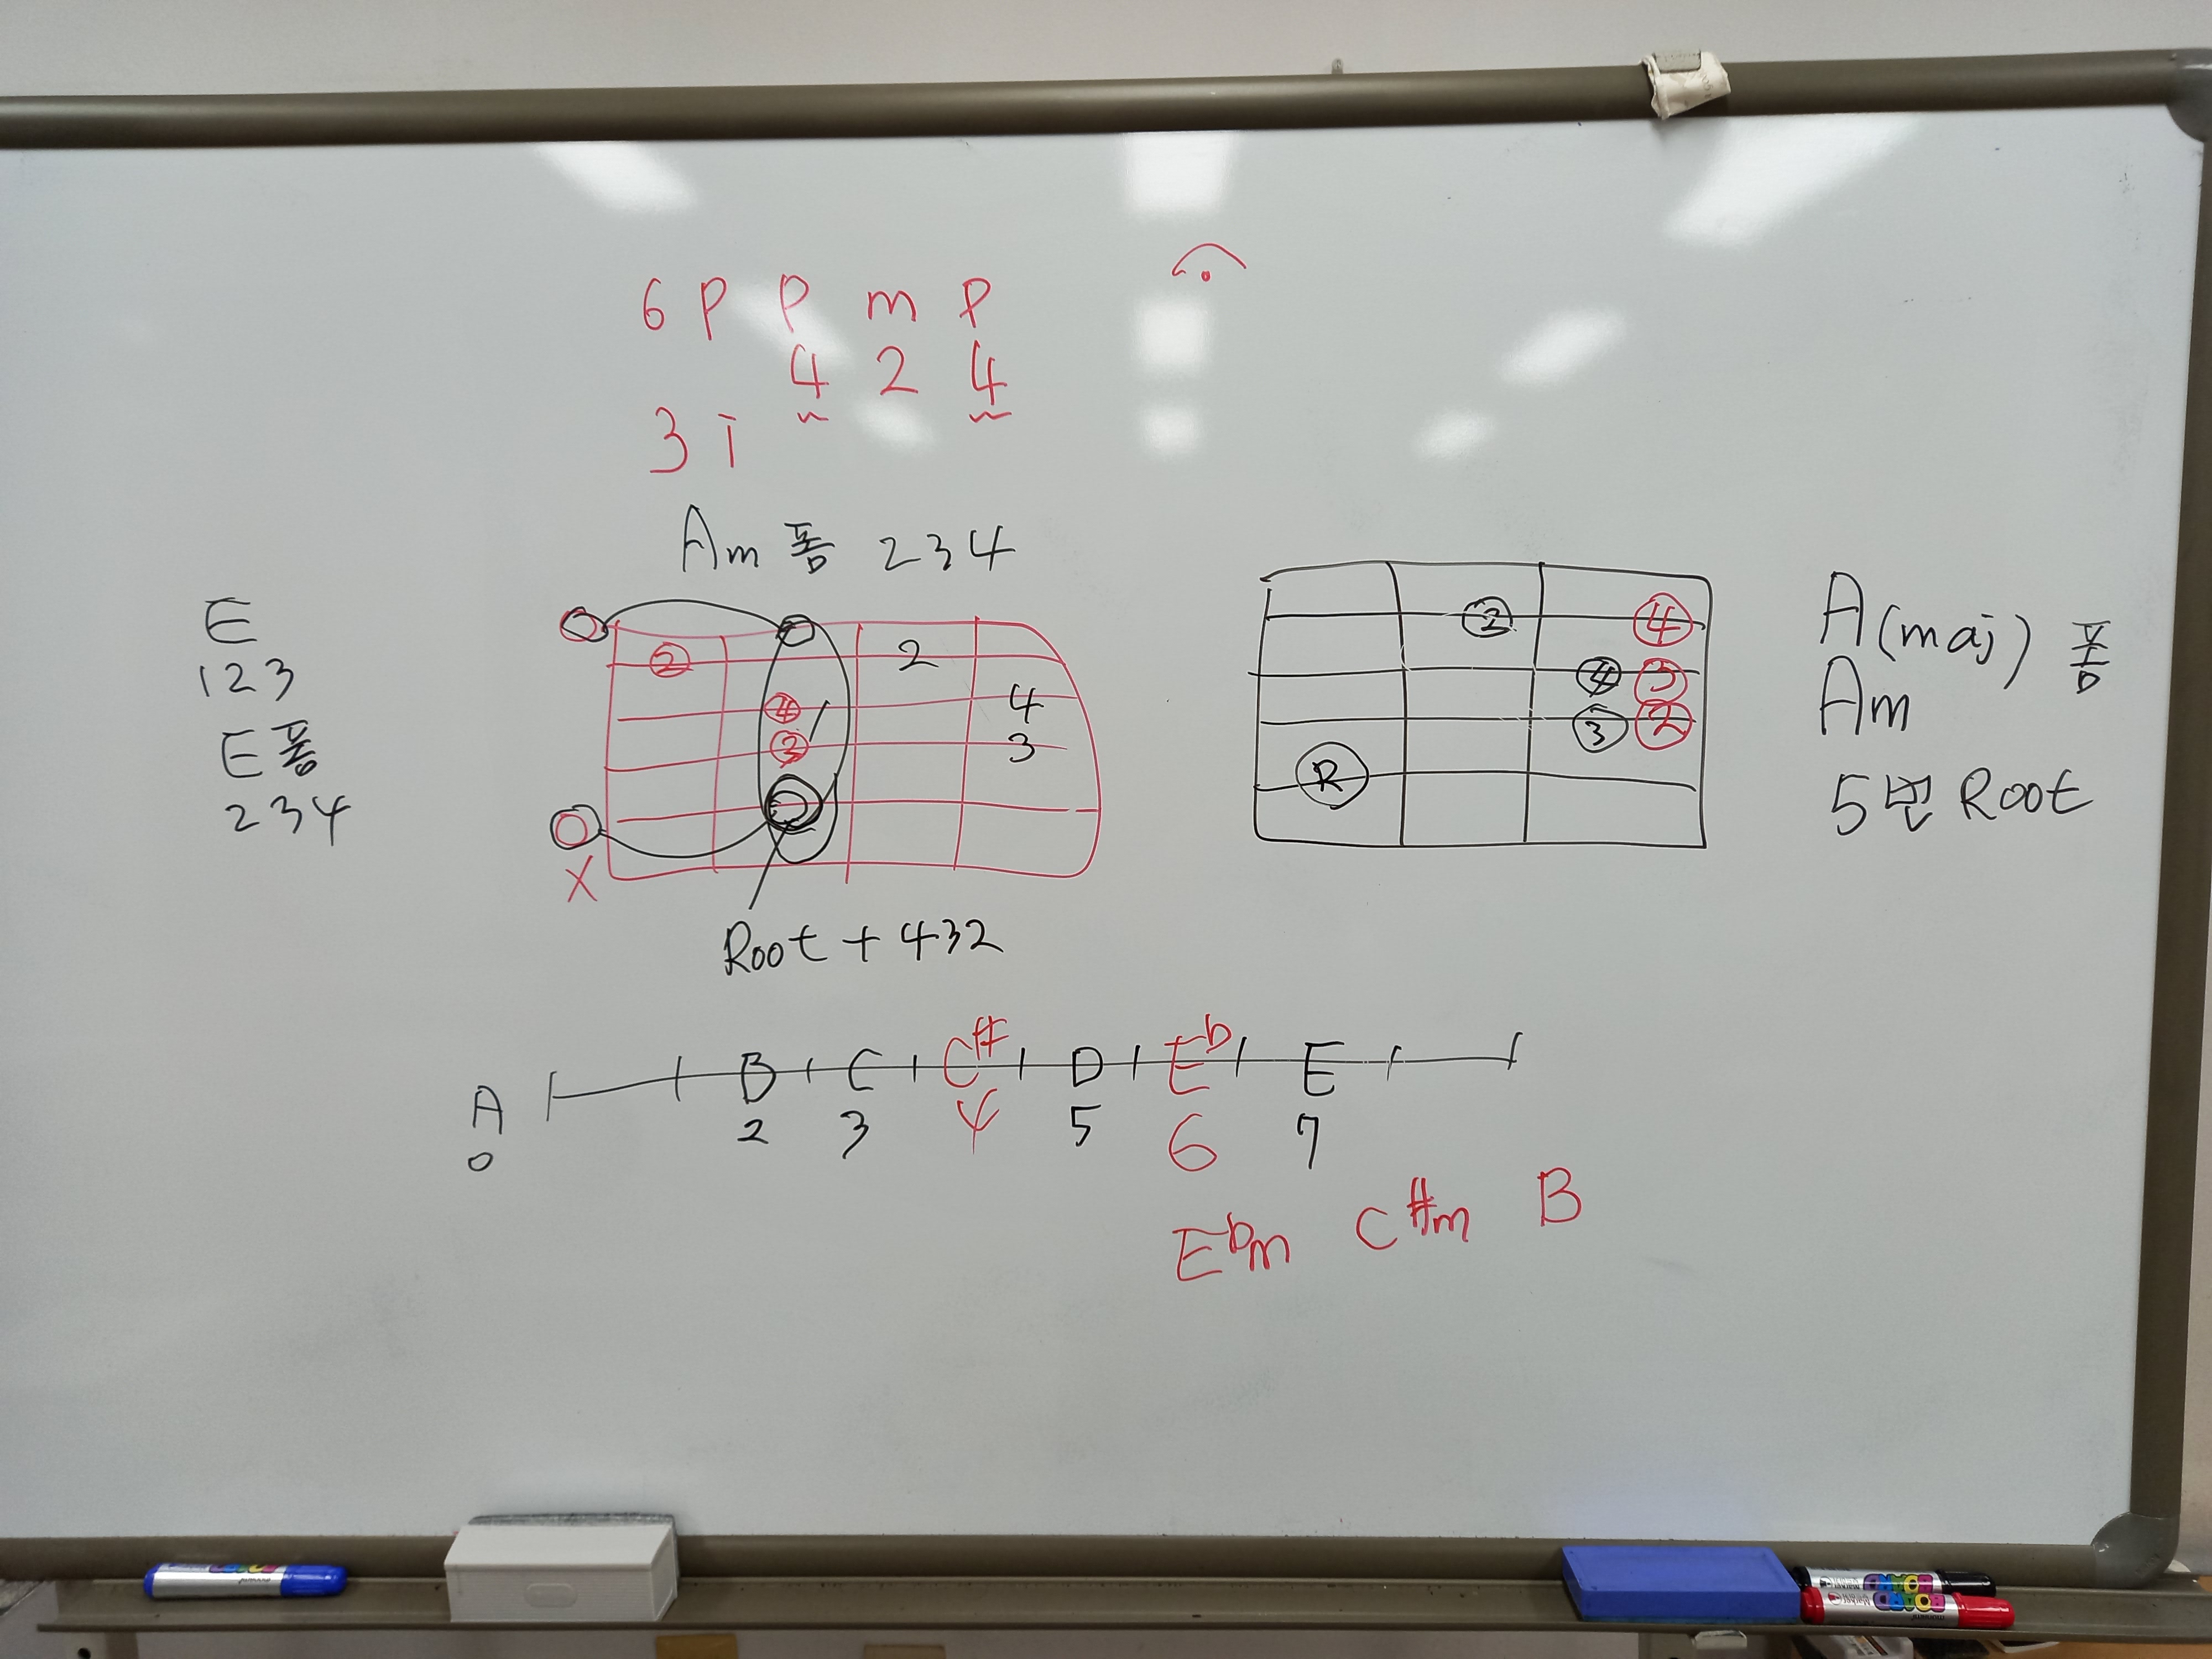 6 P P m P
4 2 4
3 i
Am 폼 2 3 4
E
1 2 3
E 폼
2 3 4
2
2
4
4
3
3
X
Root + 432
2
4
4
3
3
2
R
A(maj) 폼
Am
5번 Root
A B C C# D Eb E
0 2 3 4 5 6 7
Ebm C#m B